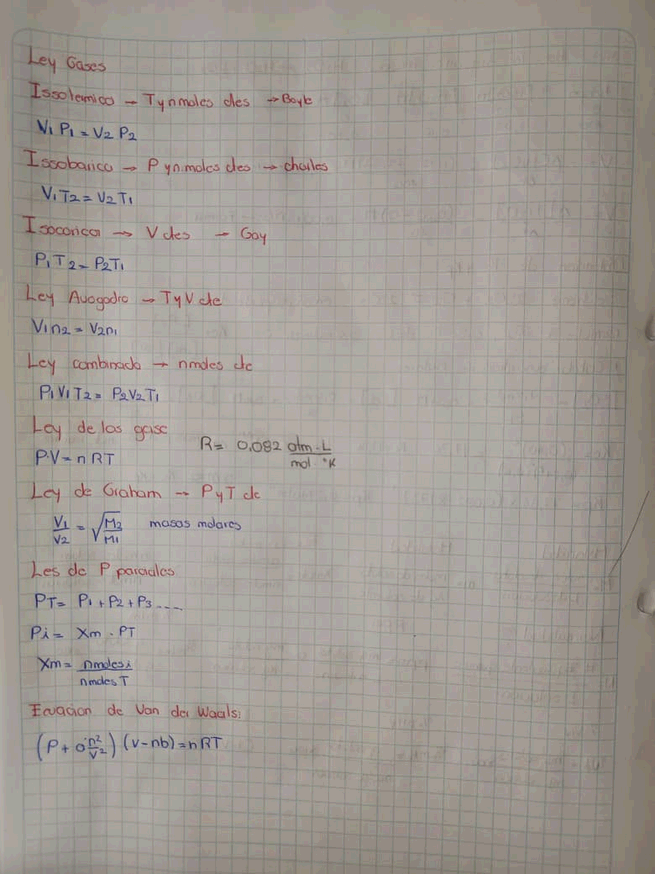 Ley Gases
Issotermico → T y n moles ctes → Boyle
V₁ P₁ = V₂ P₂
Issobarica → P y n.moles ctes → charles
V₁ T₂ = V₂ T₁
Isocorica → V ctes → Gay
P₁ T₂ = P₂ T₁
Ley Avogadro → T y V cte
V₁ n₂ = V₂ n₁
Ley combinada → n moles cte
P₁ V₁ T₂ = P₂ V₂ T₁
Ley de los gase
P·V = n RT R = 0,082 atm·L / mol °K
Ley de Graham → P y T cte
V₁/V₂ = √M₂/M₁ masas molares
Les de P parciales
PT = P₁ + P₂ + P₃ ....
Pi = Xm · PT
Xm = nmoles i / nmoles T
Ecuacion de Van der Waals:
(P + a n²/V²) (V - nb) = n RT